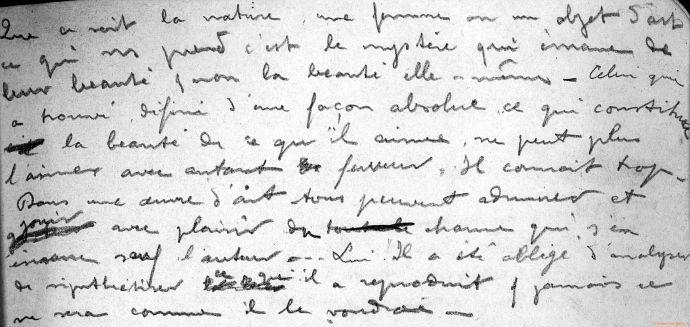 Que ce soit la nature, une femme ou un objet d'art
ce qui nous prend c'est le mystère qui émane de
leur beauté, non la beauté elle-même - Celui qui
a trouvé, définé d'une façon absolue ce qui constitue
la beauté de ce qu'il aime, ne peut plus
l'aimer avec autant de ferveur, Il connait trop -
Dans une œuvre d'art tous peuvent admirer et
jouir avec plaisir du tout le charme qui s'en
émane sauf l'auteur ... Lui! Il a été obligé d'analyser
de synthétiser ce que il a reproduit, jamais ce
ne sera comme il le voudrai -